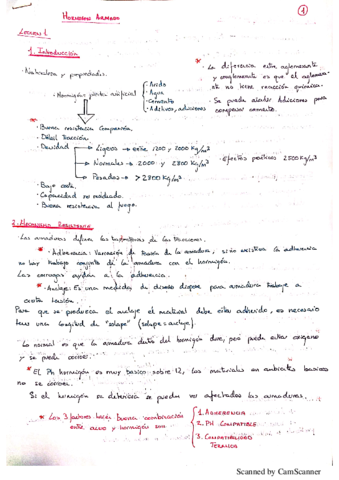 HORMIGON ARMADO
①
LECCIÓN 1
1. Introducción
· Naturaleza y propiedades.
· Hormigón: piedra artificial
· Árido
· Agua
· Cemento
· Aditivos, adiciones
* · La diferencia entre aglomerante y conglomerante es que el aglomerante no tiene reacción química.
· Se puede añadir Adiciones para compensar cemento.
*
· Buena resistencia Compresión.
· Débil Tracción.
· Densidad
Ligeros → entre 1200 y 2000 Kg/m³
Normales → 2000 y 2800 Kg/m³
Pesados → > 2800 Kg/m³
· Efectos prácticos 2500 Kg/m³
· Bajo coste.
· Capacidad de moldeado.
· Buena resistencia al fuego.
2. Hormigón Resistente
· Las armaduras definen las de las
* · Adherencia: Variación de Tensión de la armadura, si no existiera la adherencia
no hay trabajo conjunto de la armadura con el hormigón.
Las corrugas ayudan a la adherencia.
* · Anclaje: Es una medida, de diseño dispone para armadura trabaje a
cierta tensión.
Para que se produzca el anclaje el material debe estar adherido, es necesario
tener una longitud de "solape" (solape = anclaje).
Lo normal es que la armadura dentro del hormigón dure, pero puede entrar oxígeno
y se puede corroer.
* · El Ph hormigón es muy basico sobre 12, los materiales en ambientes basicos
no se corroen.
Si el hormigón se deteriora se pueden ver afectadas las armaduras.
* Los 3 factores hacen buena combinación
entre acero y hormigón son
1. ADHERENCIA
2. PH COMPATIBLE
3. COMPATIBILIDAD
TERMICA
Scanned by CamScanner